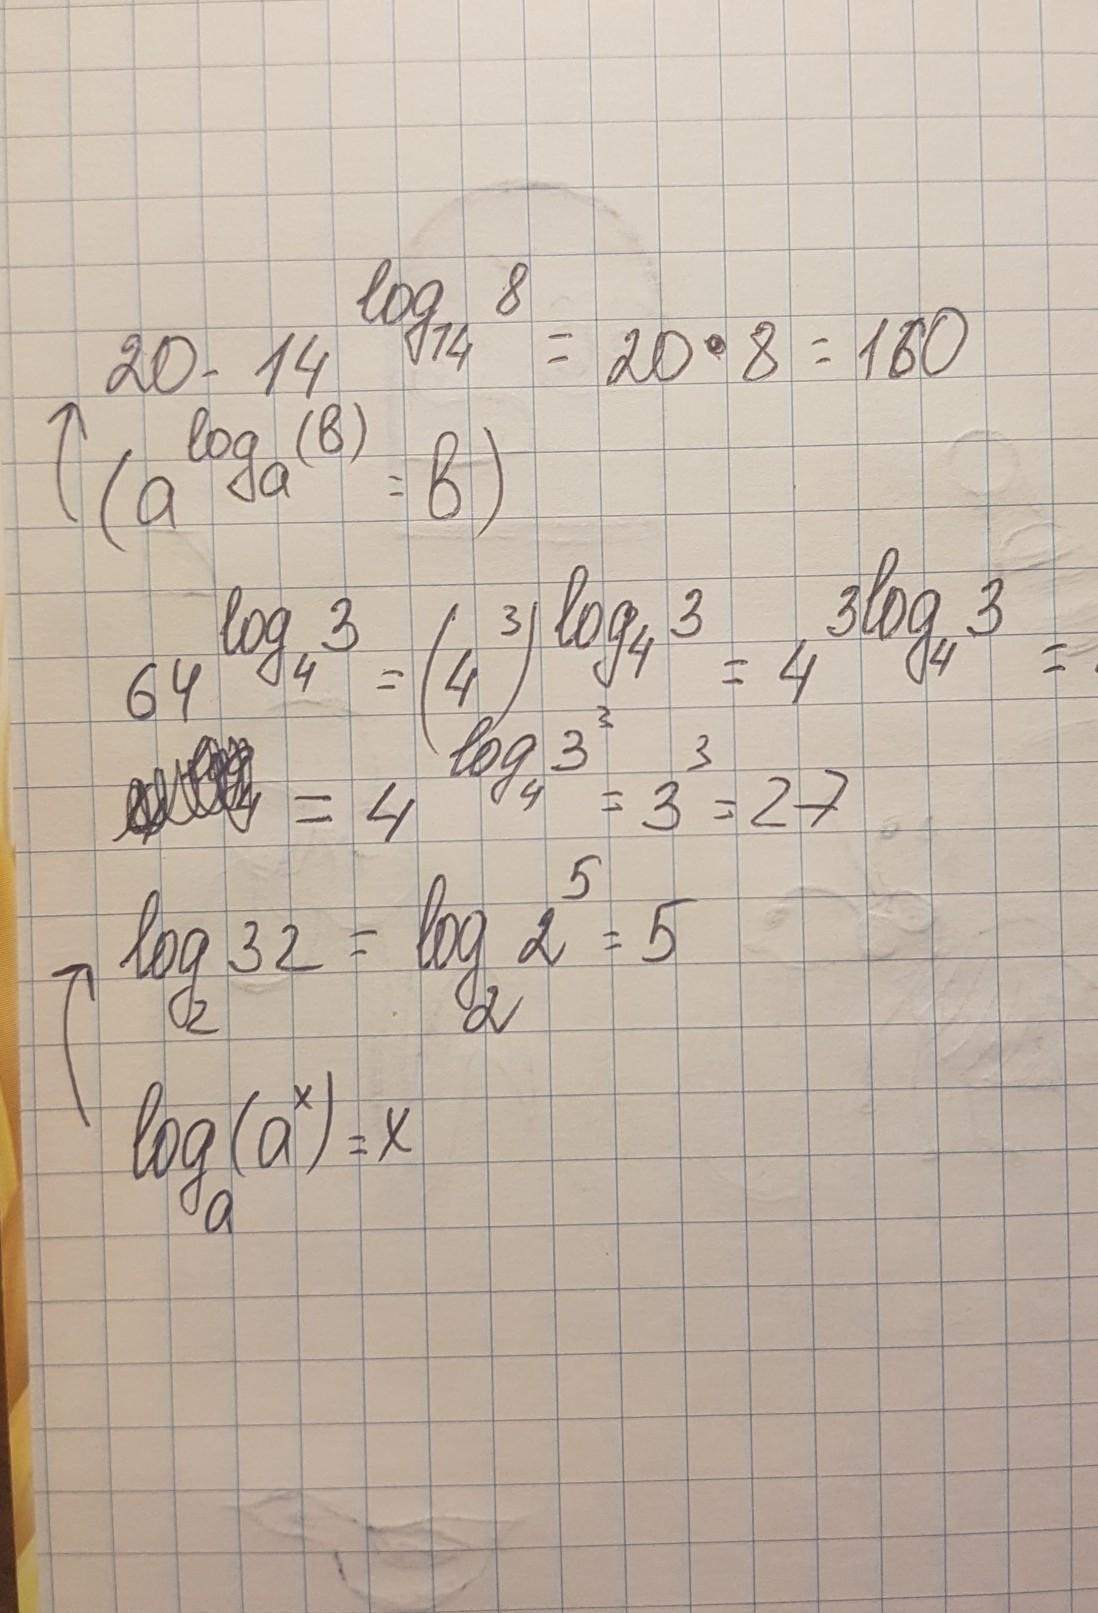 20 · 14^{log_{14} 8} = 20 • 8 = 160
(a^{log_a (b)} = b)
64^{log_4 3} = (4^3)^{log_4 3} = 4^{3 log_4 3} =
= 4^{log_4 3^3} = 3^3 = 27
log_2 32 = log_2 2^5 = 5
log_a (a^x) = x